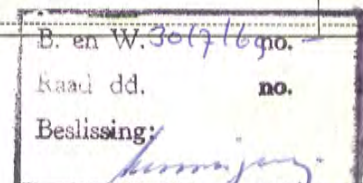 B. en W. 30/7/69 no. -
Raad dd. no.
Beslissing: